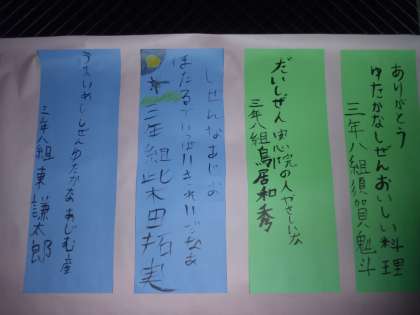 ありがとう
ゆたかなしぜんおいしい料理
三年八組須賀魁斗
だいしぜん 安心院の人やさしいな
三年八組鳥居和秀
しぜんなあじむ
ほたるでいっぱいきれいだなあ
三年 組柴田拓実
うまいめししぜんゆたかなあじむ産
三年八組東謙太郎